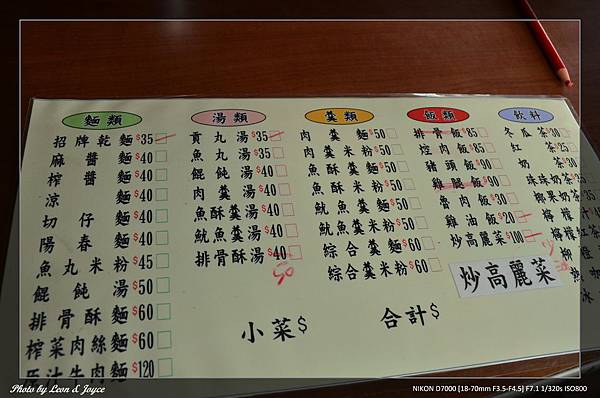 麵類
招牌乾麵 $35
麻醬麵 $40
榨醬麵 $40
涼麵 $40
切仔麵 $40
陽春麵 $40
魚丸米粉 $45
餛飩湯 $50
排骨酥麵 $60
榨菜肉絲麵 $60
原汁牛肉麵 $120
湯類
貢丸湯 $35
魚丸湯 $35
餛飩湯 $40
肉羹湯 $40
魚酥羹湯 $40
魷魚羹湯 $40
排骨酥湯 $40
50
羹類
肉羹麵 $50
肉羹米粉 $50
魚酥羹麵 $50
魚酥米粉 $50
魷魚羹麵 $50
魷魚羹米粉 $50
綜合羹麵 $60
綜合羹米粉 $60
飯類
排骨飯 $85
焢肉飯 $85
豬頭飯 $90
雞腿飯 $90
魯肉飯 $30
雞油飯 $20
炒高麗菜 $100
飲料
冬瓜茶 $30
紅茶 $25
奶茶 $30
珠珠奶茶 $35
椰果奶茶 $35
檸檬汁
檸檬紅茶
炒高麗菜
小菜$
合計$
Photo by Leon & Joyce
NIKON D7000 [18-70mm F3.5-F4.5] F7.1 1/320s ISO800